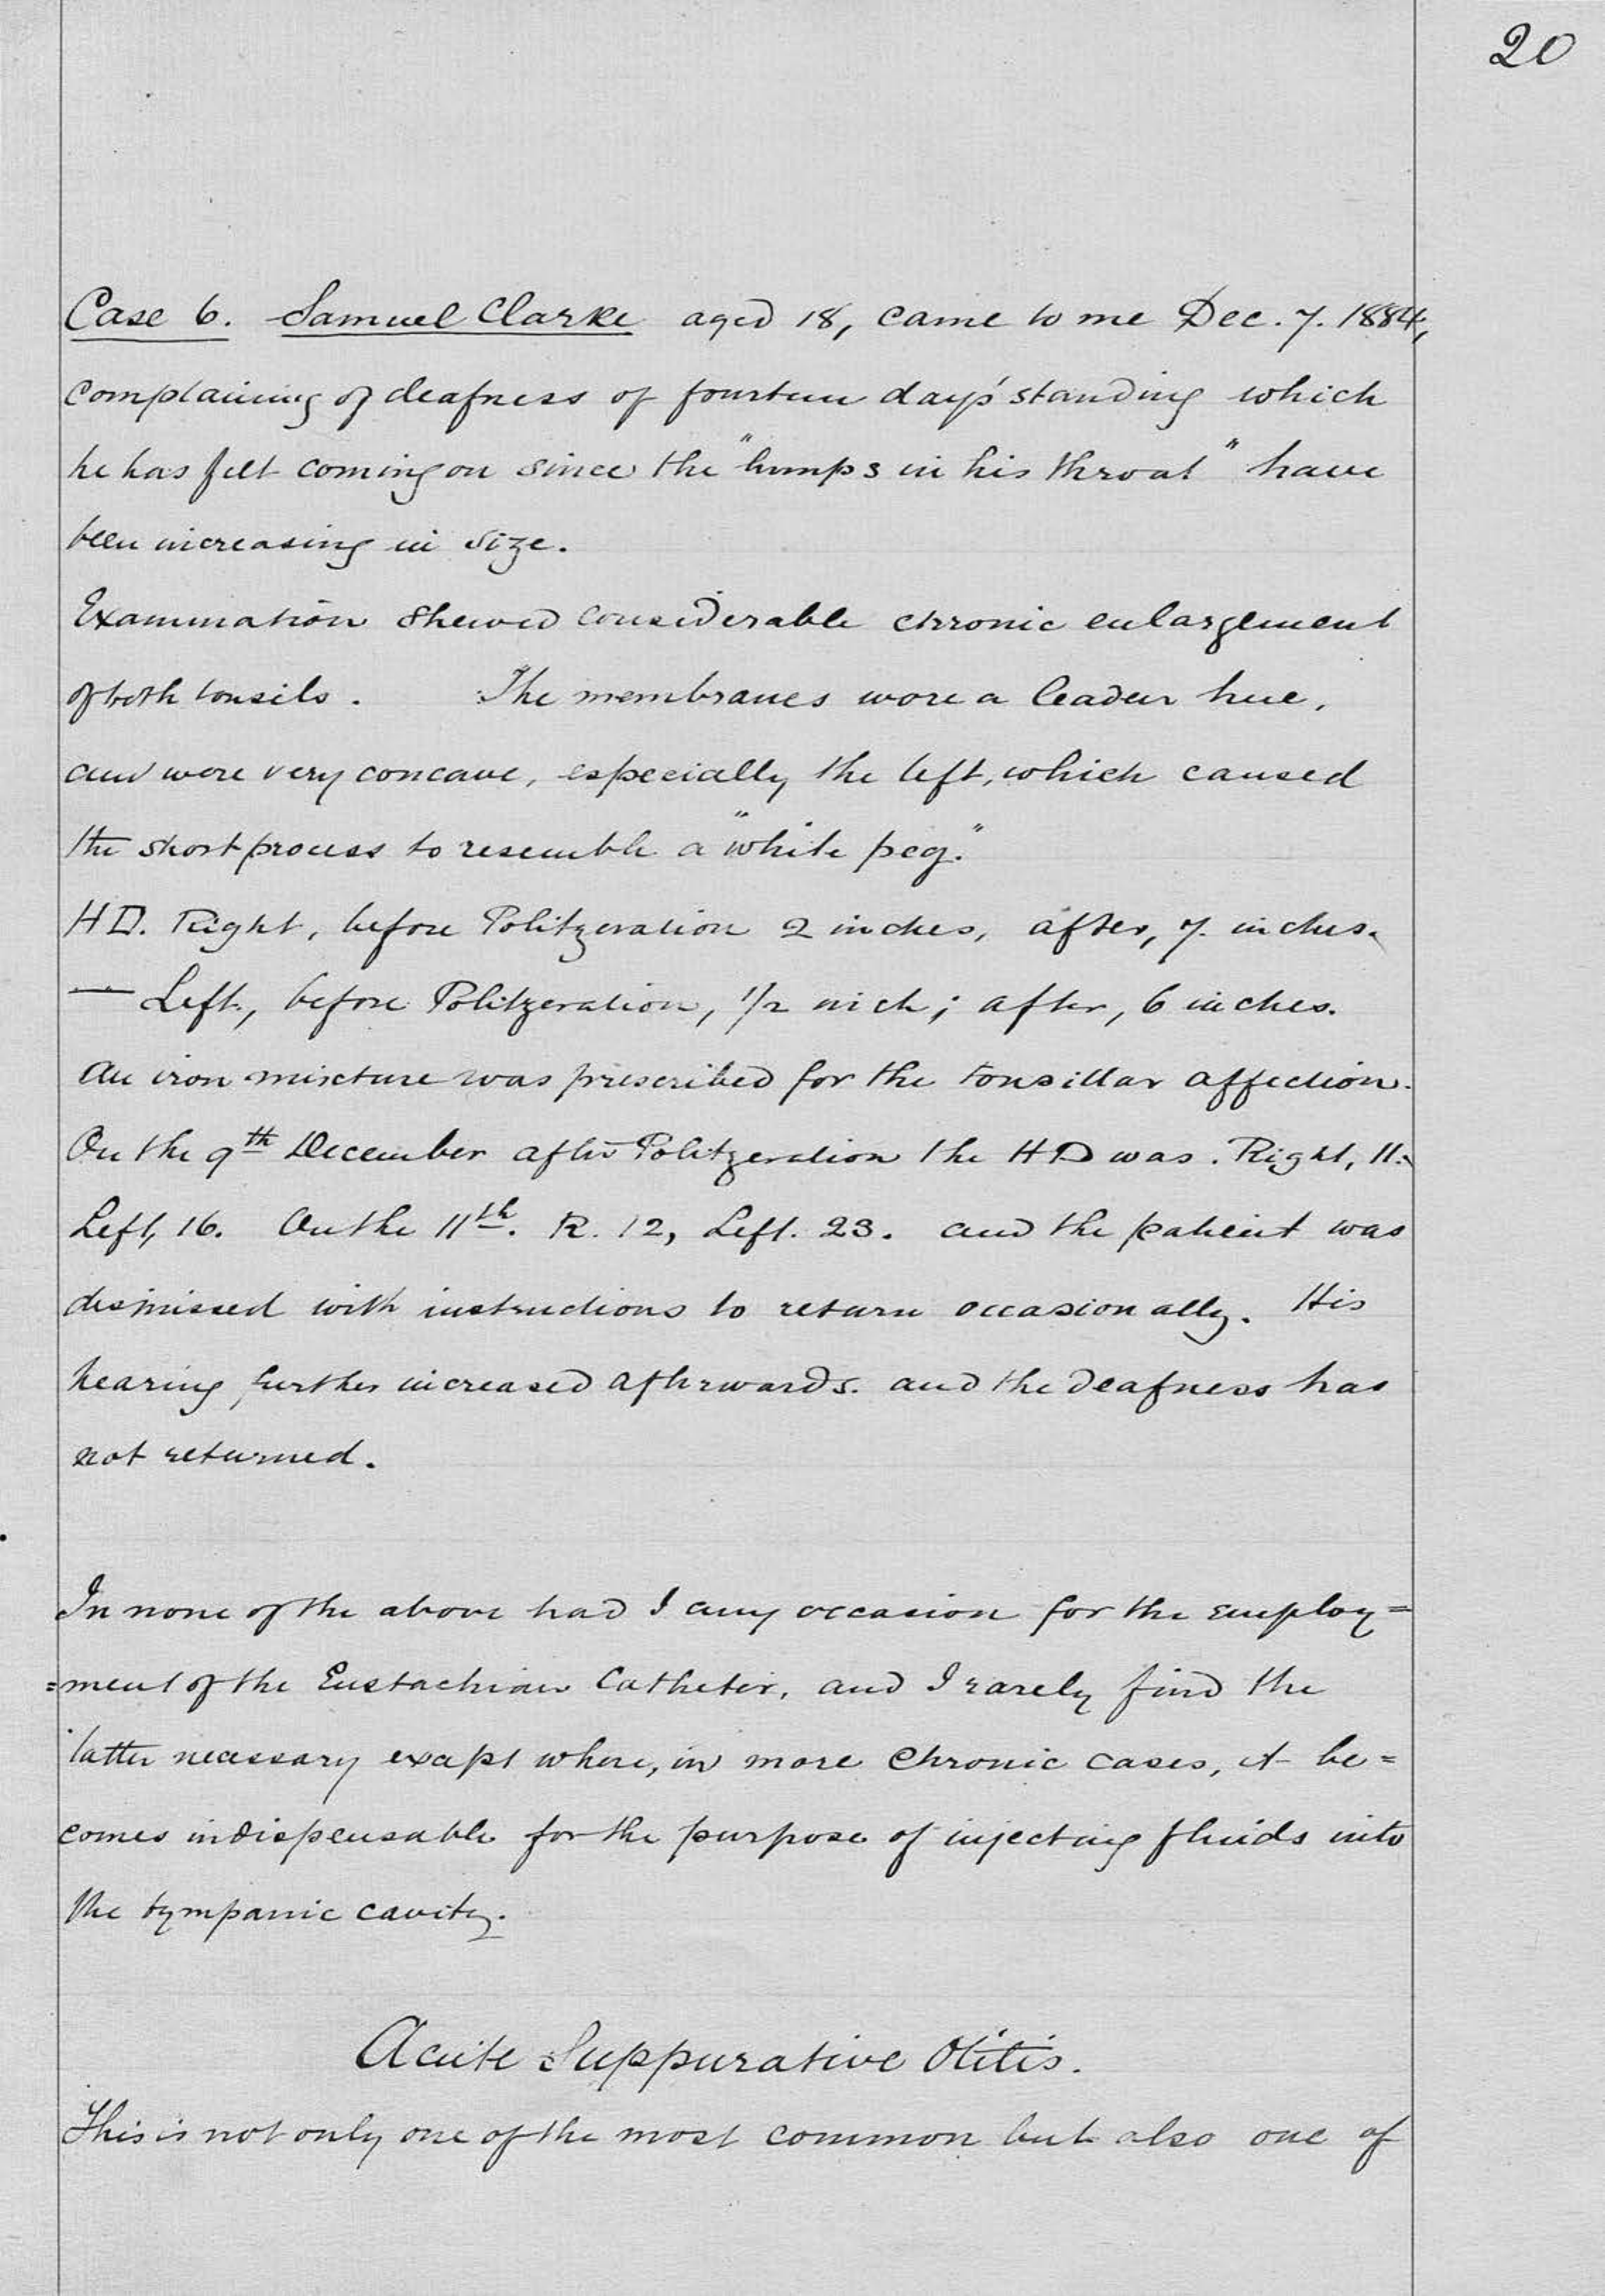 20
Case 6. Samuel Clarke aged 18, came to me Dec. 7. 1884,
complaining of deafness of fourteen days' standing which
he has felt coming on since the "lumps in his throat" have
been increasing in size.
Examination shewed considerable chronic enlargement
of both tonsils. The membranes wore a leaden hue,
and were very concave, especially the left, which caused
the short process to resemble a "white peg."
HD. Right, before Politzeration 2 inches, after, 7. inches.
— Left, before Politzeration, 1/2 inch; after, 6 inches.
An iron mixture was prescribed for the tonsillar affection.
On the 9th December after Politzeration the HD was. Right, 11.
Left, 16. On the 11th. R. 12, Left. 23. and the patient was
dismissed with instructions to return occasionally. His
hearing further increased afterwards. and the deafness has
not returned.
In none of the above had I any occasion for the employ=
=ment of the Eustachian Catheter, and I rarely find the
latter necessary except where, in more chronic cases, it be=
comes indispensable for the purpose of injecting fluids into
the tympanic cavity.
Acute Suppurative Otitis.
This is not only one of the most common but also one of